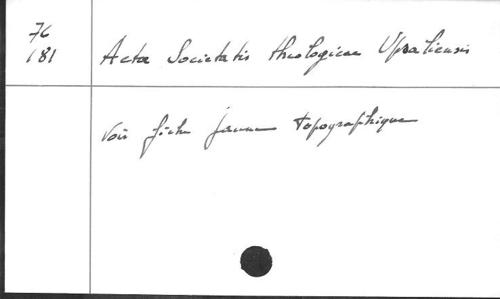 76
181
Acta Societatis theologicae Upsaliensis
Voir fiche jaune topographique